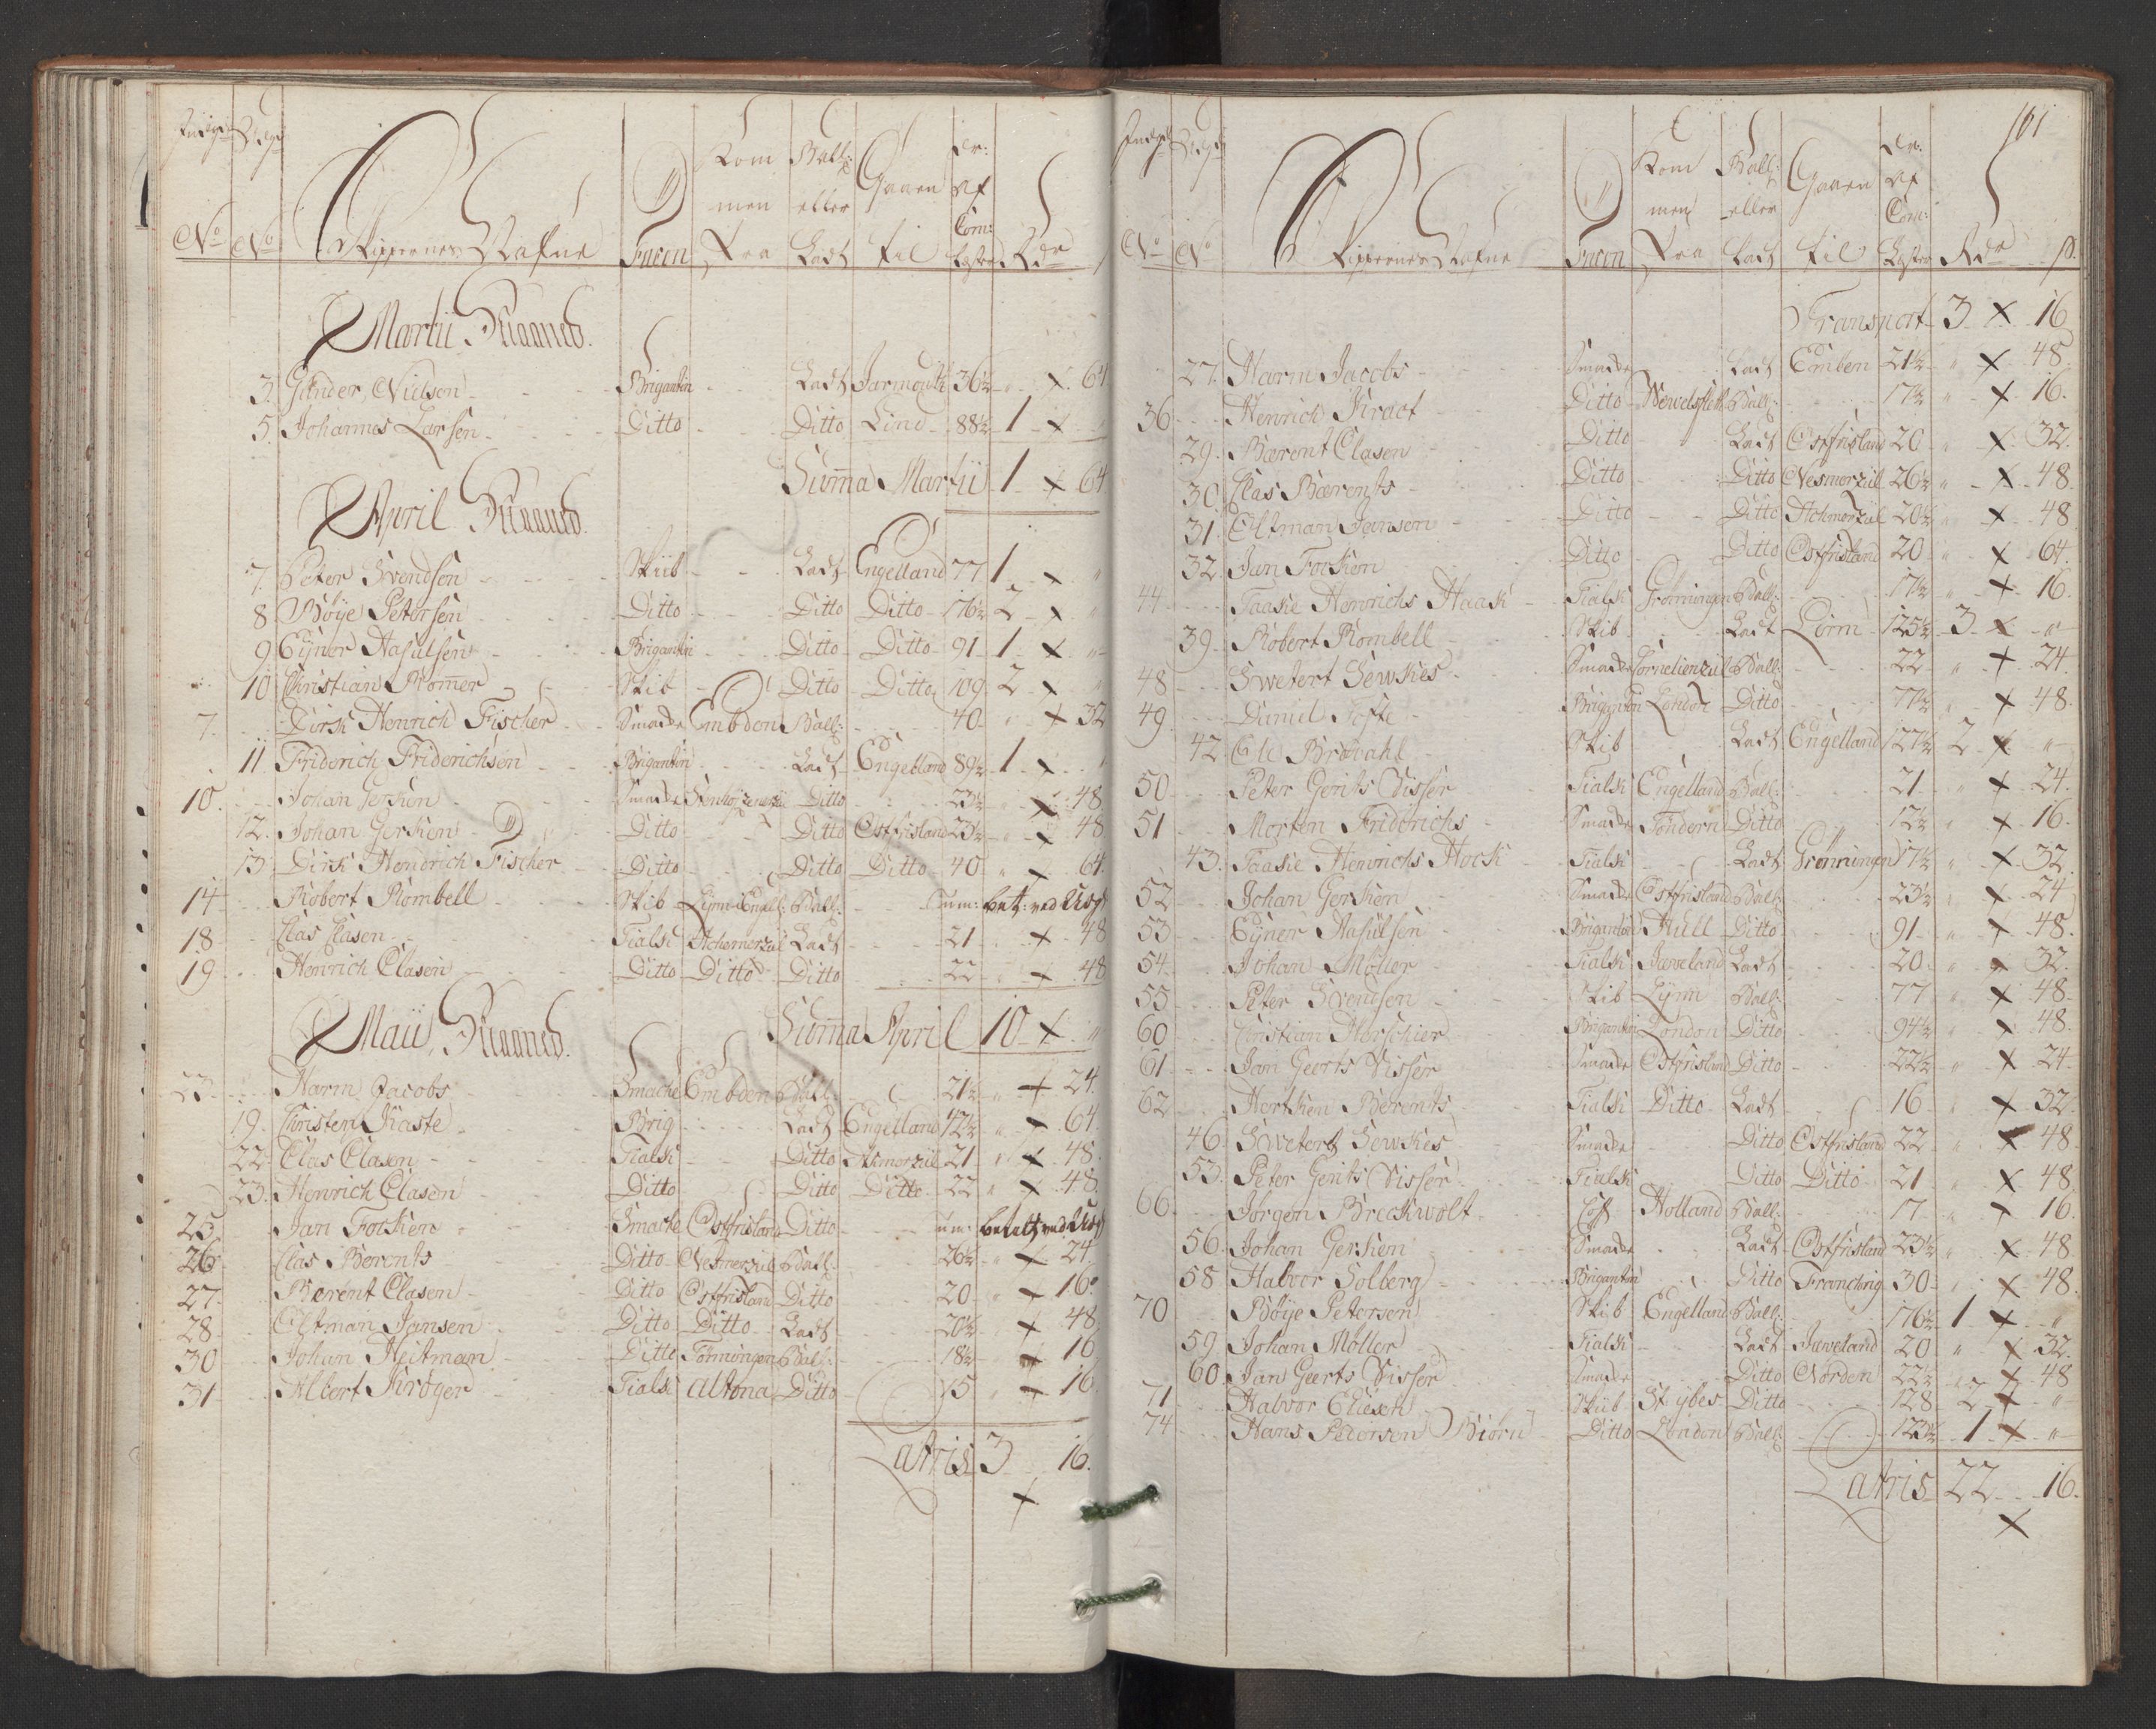 Indgd Udgd
Kom Ball: Gaaen dr:
men eller af
Com:
No No Skippernes Nafne Facon Fra Ladt til Læster Rdr
Martii Maaned.
3. Gunder Nielsen Brigantin Ladt Jarmouth 36½ " 64
5. Johannes Larsen Ditto Ditto Lind 88½ 1 "
Suma Martii 1 64
April Maaned.
7. Peter Svendsen Skiib Ladt Engelland 77 1 "
8 Bøÿe Petersen Ditto Ditto Ditto 176½ 2 "
9 Eÿner Aasulsen Brigantin Ditto Ditto 91 1 "
10 Christian Romer Skib Ditto Ditto 109 2 "
7. Dirk Henrich Fischer Smacke Embden Ball: 40 " 32
11 Friderich Friderichsen Brigantin Ladt Engelland 89½ 1 "
10. Johan Gerken Smacke Ditto 23½ " 48
12. Johan Gerken Ditto Ditto Ostfrisland 23½ " 48
13 Dirk Hendrich Fischer Ditto Ditto Ditto 40 " 64
14 Robert Rombell Skib Lynn Engell: Ball: betz: ved Udg
18 Clas Clasen Tialk Achemerzul Ladt 21 48
19 Henrich Clasen Ditto Ditto Ditto 22 " 48
Suma April 10 "
Maii Maaned.
23 Harm Jacobs Smacke Embden Ball: 21½ " 24
19. Christen Kaste Brig Ladt Engelland 42½ " 64
22 Clas Clasen Tialk Ditto Akmerzul 21 " 48
23. Henrich Clasen Ditto Ditto Ditto 22 " 48
25 Jan Focken Smacke Ostfrisland Ditto betalt ved Udg
26 Clas Berents Ditto Nesmerzul Ball: 26½ " 24
27 Berent Clasen Ditto Ostfrisland Ditto 20 " 16
28 Oltman Jansen Ditto Ditto Ladt 20½ " 48
30 Johan Heitman Ditto Tønningen Ball: 18½ " 16
31 Albert Krøger Tialk Altona Ditto 15 " 16
Latris 3 16.
161
Indgd Udgd
Kom Ball: Gaaen dr:
men eller af
Com:
No No Skippernes Nafne Facon Fra Ladt til Læster Rdr s.
Transport 3 16
27. Harm Jacobs Smacke Ladt Embden 21½ " 48
36 Henrich Kract Ditto Wewelsfleth Ball: 17½ " 16.
29. Bærent Clasen Ditto Ladt Ostfrisland 20 " 32.
30 Clas Bærents Ditto Ditto Nesmerzull 26½ " 48.
31. Oltman Jansen Ditto Ditto Achmerzul 20½ " 48
32. Jan Focken Ditto Ditto Ostfrisland 20 " 64.
44 Taasie Henrichs Haak Tialk Grønningen Ball: 17½ " 16.
39. Robert Rombell Skib Ladt Lørm 125½ 3 "
48 Swetert Sewkes Smacke Cornelienzul Ball: 22 " 24
49 Daniel Tofte Brigantin London Ditto 77½ " 48.
42 Ole Brovahl Skib Ladt Engelland 127½ 2 "
50 Peter Gerits Visser Tialk Engelland Ball: 21 " 24.
51 Morten Friderichs Smacke Tøndern Ditto 12½ " 16.
43. Taasie Henrichs Hock Tialk Ladt Grønningen 17½ " 32
52 Johan Gerken Smacke Ostfrisland Ball: 23½ " 24
53 Eÿner Aasulsen Brigantin Hull Ditto 91 " 48.
54 Johan Møller Tialk Jeveland Ladt 20 " 32.
55 Peter Svendsen Skib Lynn Ball: 77 " 48
60 Christian Herschier Brigantin London Ditto 94½ " 48.
61 Jan Geerts Visser Smacke Ostfrisland Ditto 22½ " 24
62 Hertken Berents Tialk Ditto Ladt 16 " 32
46. Swetert Sewkes Smacke Ditto Ostfrisland 22 " 48.
53. Peter Gerits Visser Tialk Ditto Ditto 21 " 48
66 Jørgen Breckwolt Holland Ball: 17 " 16.
56. Johan Gerken Smacke Ladt Ostfrisland 23½ " 48
58 Halvor Solberg Brigantin Ditto Franchrig 30 " 48.
70 Bøÿe Petersen Skib Engelland Ball: 176½ 1 "
59 Johan Møller Tialk Ladt Jeveland 20 " 32.
60. Jan Geerts Visser Smacke Ditto Norden 22½ " 48
71 Halvor Eliesen Skiib St ybes Ditto 128 2 "
74 Hans Pedersen Biørn Ditto London Ball: 123½ 1 "
Latris 22 16.